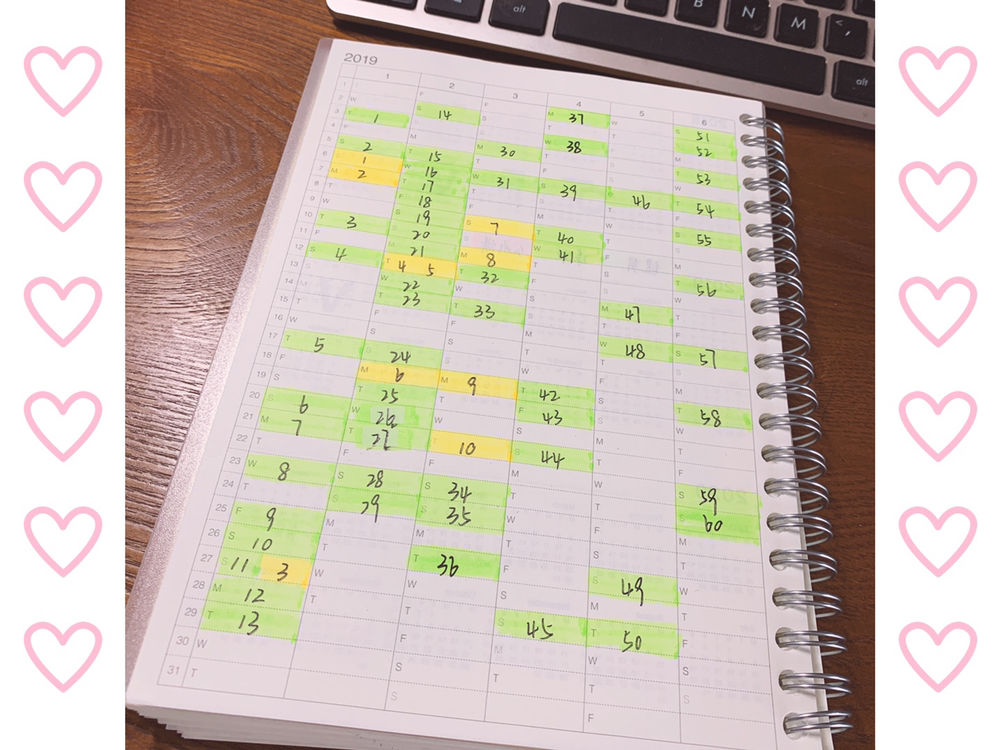 2019
1 2 3 4 5 6
1 F F M 37 W S 51
2 W S 14 S T T S 52
3 T 1 S S W 38 F M
4 F M M 30 T S T 53
5 S 2 T 15 T F S W
6 S 1 W 16 W 31 S 39 M 46 T 54
7 M 2 T 17 T S T F
8 T F 18 F M W S 55
9 W S 19 S 7 T 40 T S
10 T 3 S 20 S W 41 F M
11 F M 21 M 8 T S T 56
12 S 4 T 4 5 T 32 F S W
13 S W 22 W S M 47 T
14 M T 23 T 33 S T F
15 T F F M W 48 S 57
16 W S S T T S
17 T 5 S 24 S W F M
18 F M 6 M 9 T 42 S T 58
19 S T 25 T F 43 S W
20 S 6 W 26 W S M T
21 M 7 T 27 T 10 S 44 T F
22 T F F M W S 59
23 W 8 S 28 S 34 T T S 60
24 T S 29 S 35 W F M
25 F 9 M M T S T
26 S 10 T T 36 F S 49 W
27 S 11 3 W W S M T
28 M 12 T T S 45 T 50 F
29 T 13 F M W S
30 W S T T S
31 T S F
B N M < ,
alt
alt